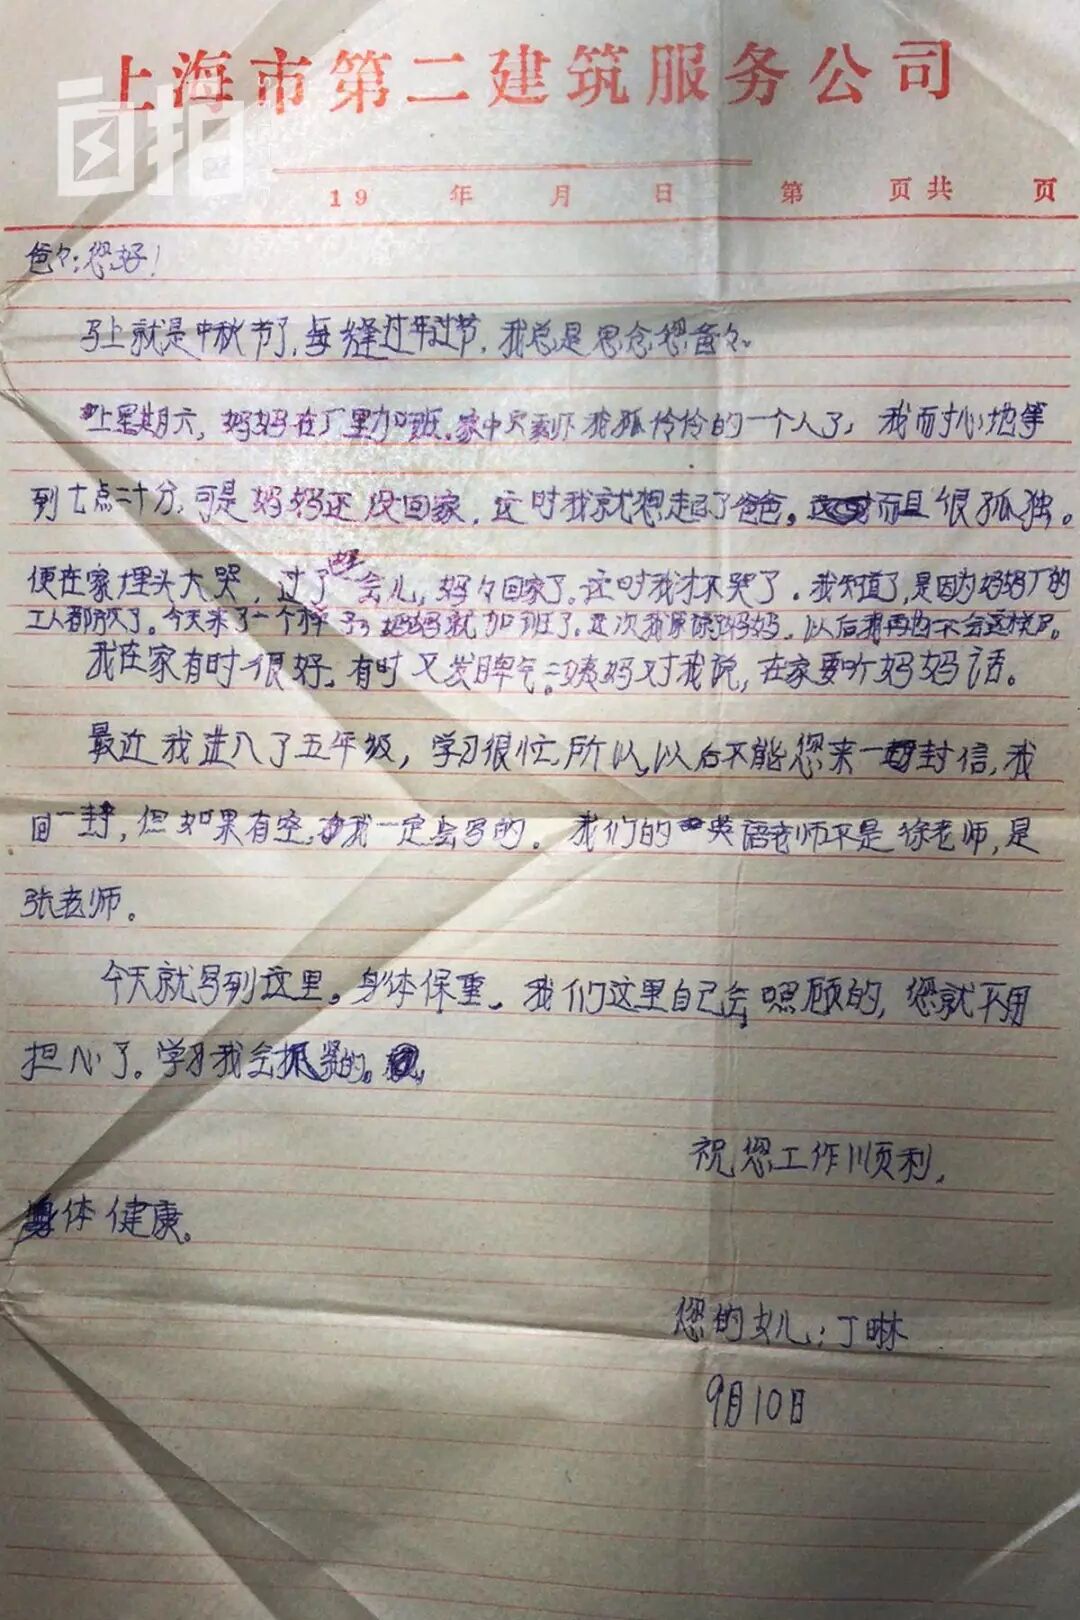 上海市第二建筑服务公司
自拍
19 年 月 日 第 页共 页
爸々:您好!
马上就是中秋节了,每缝过年过节,我总是思念您爸々。
上星期六,妈妈在厂里加班。家中只剩下我孤伶伶的一个人了,我耐心地等
到七点二十分,可是妈妈还没回家,这时我就想起了爸爸。而且很孤独。
便在家埋头大哭,过了会儿,妈々回家了。这时我才不哭了。我知道了,是因为妈妈厂的
工人都放了。今天来了一个妈妈就加班了。这次我错怪妈妈,以后我再也不会这样了。
我在家有时很好,有时又发脾气。二姨妈对我说,在家要听妈妈话。
最近我进入了五年级,学习很忙,所以,以后不能您来一封信,我
回一封,但如果有空,我一定会写的。我们的英语老师不是徐老师,是
张老师。
今天就写到这里。身体保重。我们这里自己会照顾的,您就不用
担心了。学习我会抓紧的。
祝您工作顺利,
身体健康。
您的女儿:丁啉
9月10日